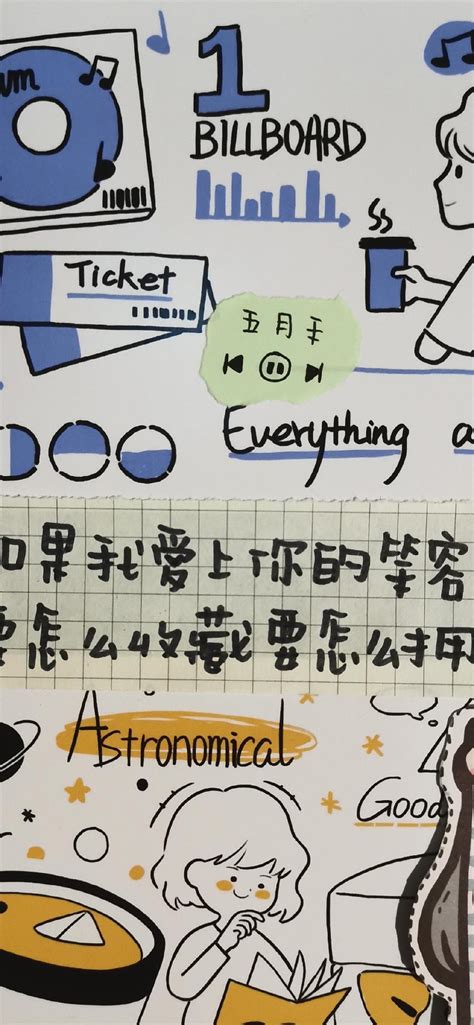 1
BILLBOARD
Ticket
五月天
Everything
如果我爱上你的笑容
要怎么收藏要怎么拥
Astronomical
Good